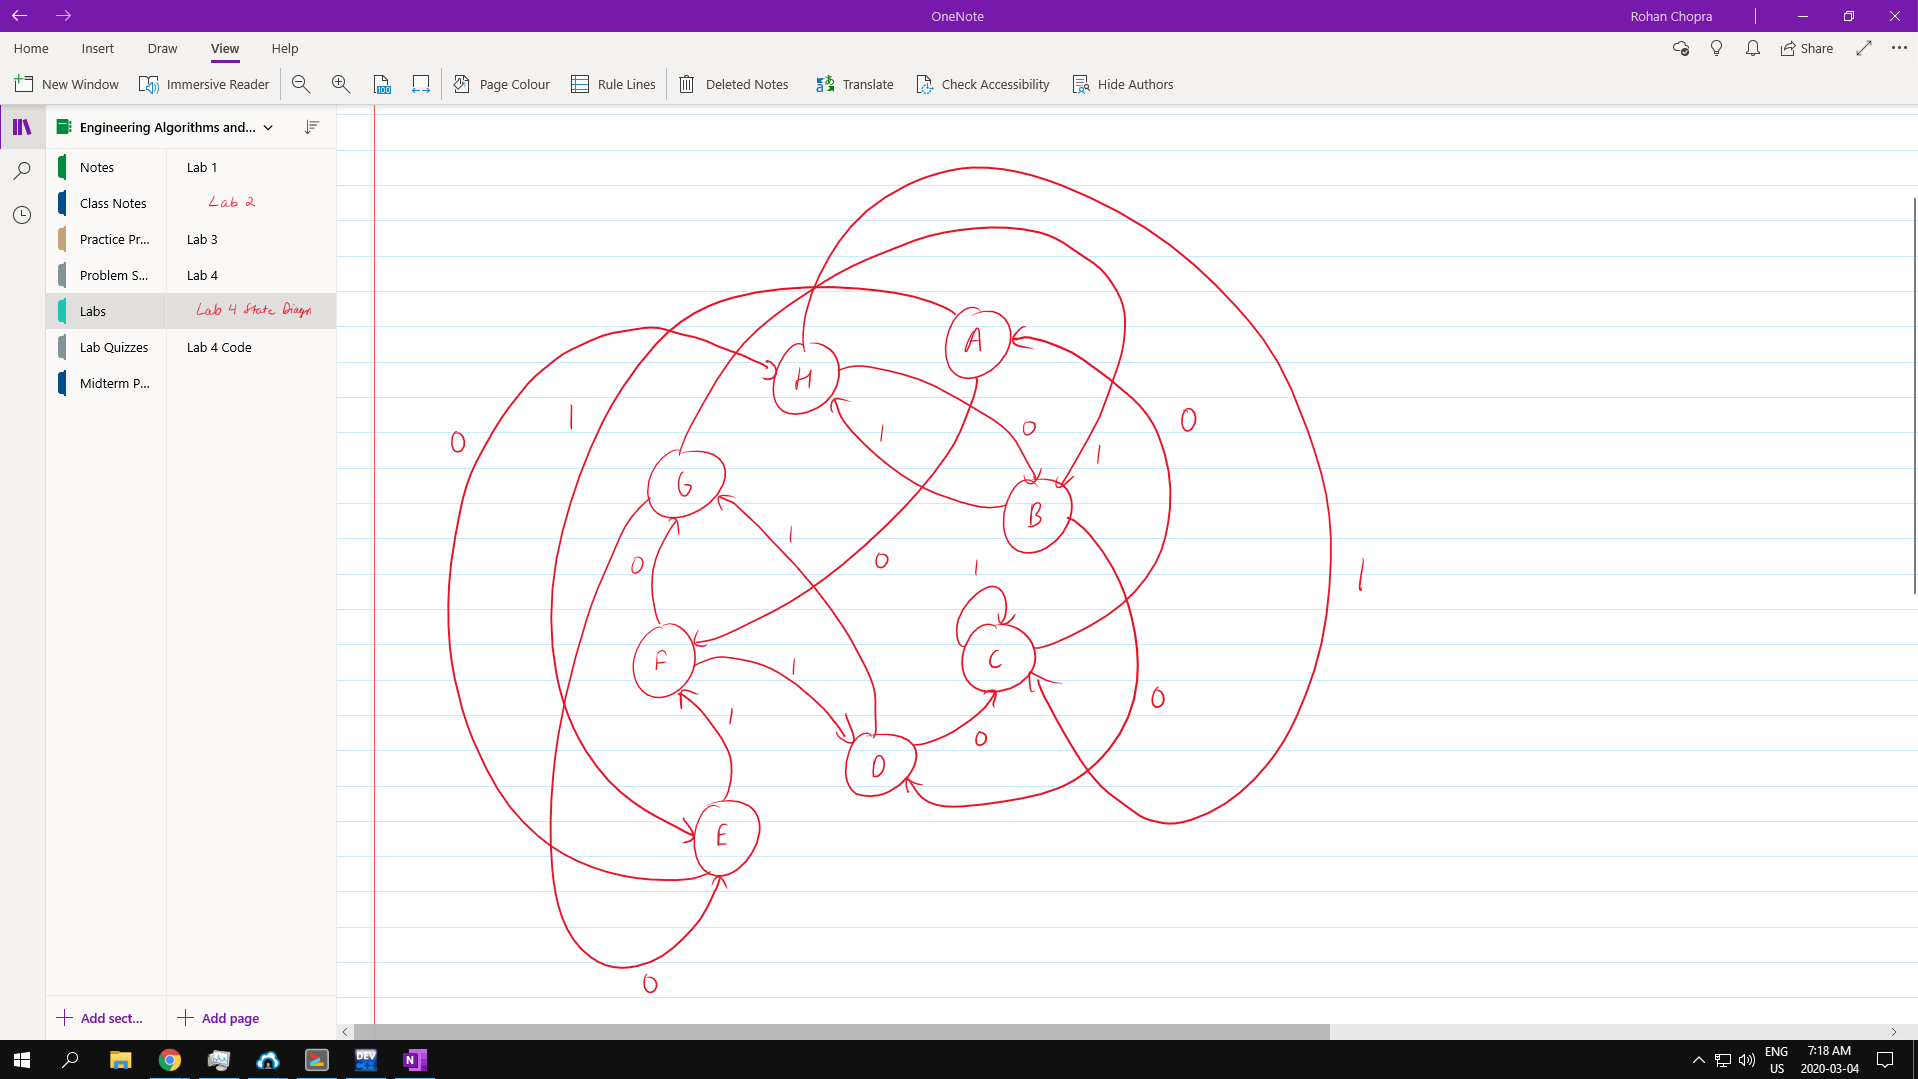 OneNote
Rohan Chopra
Home Insert Draw View Help
Share
New Window Immersive Reader 100 Page Colour Rule Lines Deleted Notes Translate Check Accessibility Hide Authors
Engineering Algorithms and...
Notes
Class Notes
Practice Pr...
Problem S...
Labs
Lab Quizzes
Midterm P...
Lab 1
Lab 2
Lab 3
Lab 4
Lab 4 State Diagr
Lab 4 Code
A
H
0
1
0
1
0
1
G
B
1
0
0
1
1
F
1
C
0
1
0
D
E
0
Add sect...
Add page
DEV
N
ENG
US
7:18 AM
2020-03-04